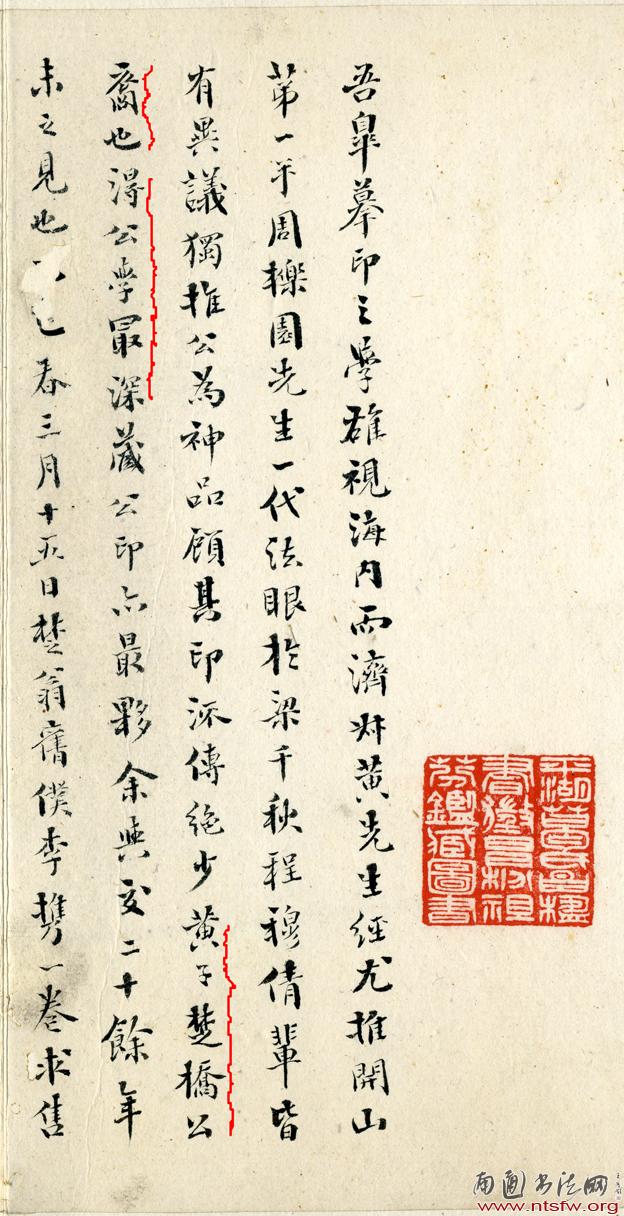 吾皐摹印之學雄視海内而濟叔黄先生經尤推開山
苐一手周櫟園先生一代法眼扵梁千秋程穆倩輩皆
有異議獨推公為神品顧其印派傳絶少黄子楚橋公
裔也淂公學冣深蔵公印亦最夥余與交二十餘年
未之見也 春三月十五日楚翁舊僕李攜一卷求售
平湖
書徵 祖
芬鑑臧圖書
南通书法网
www.ntsfw.org